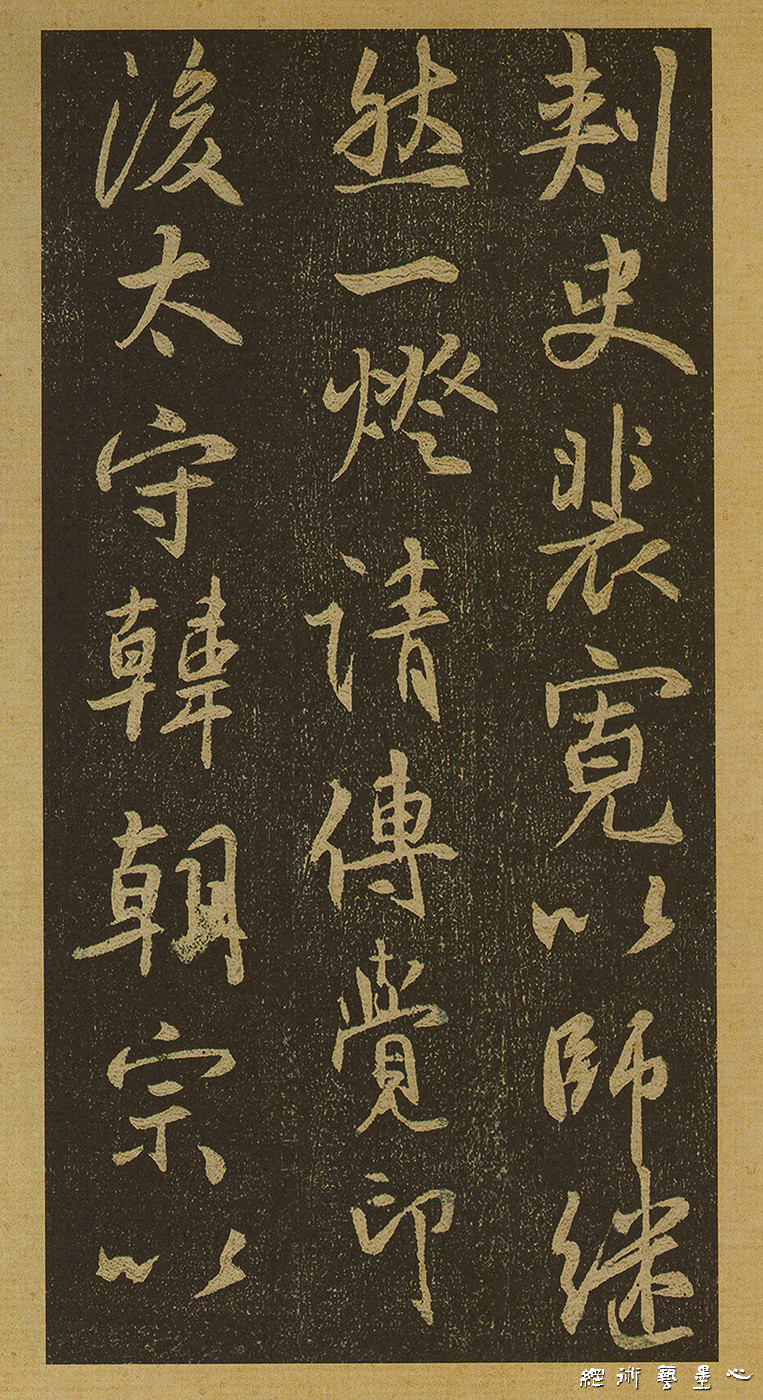 刺史裴寬以師继
然一燈請傳覺印
後太守韓朝宗以
心墨藝術網